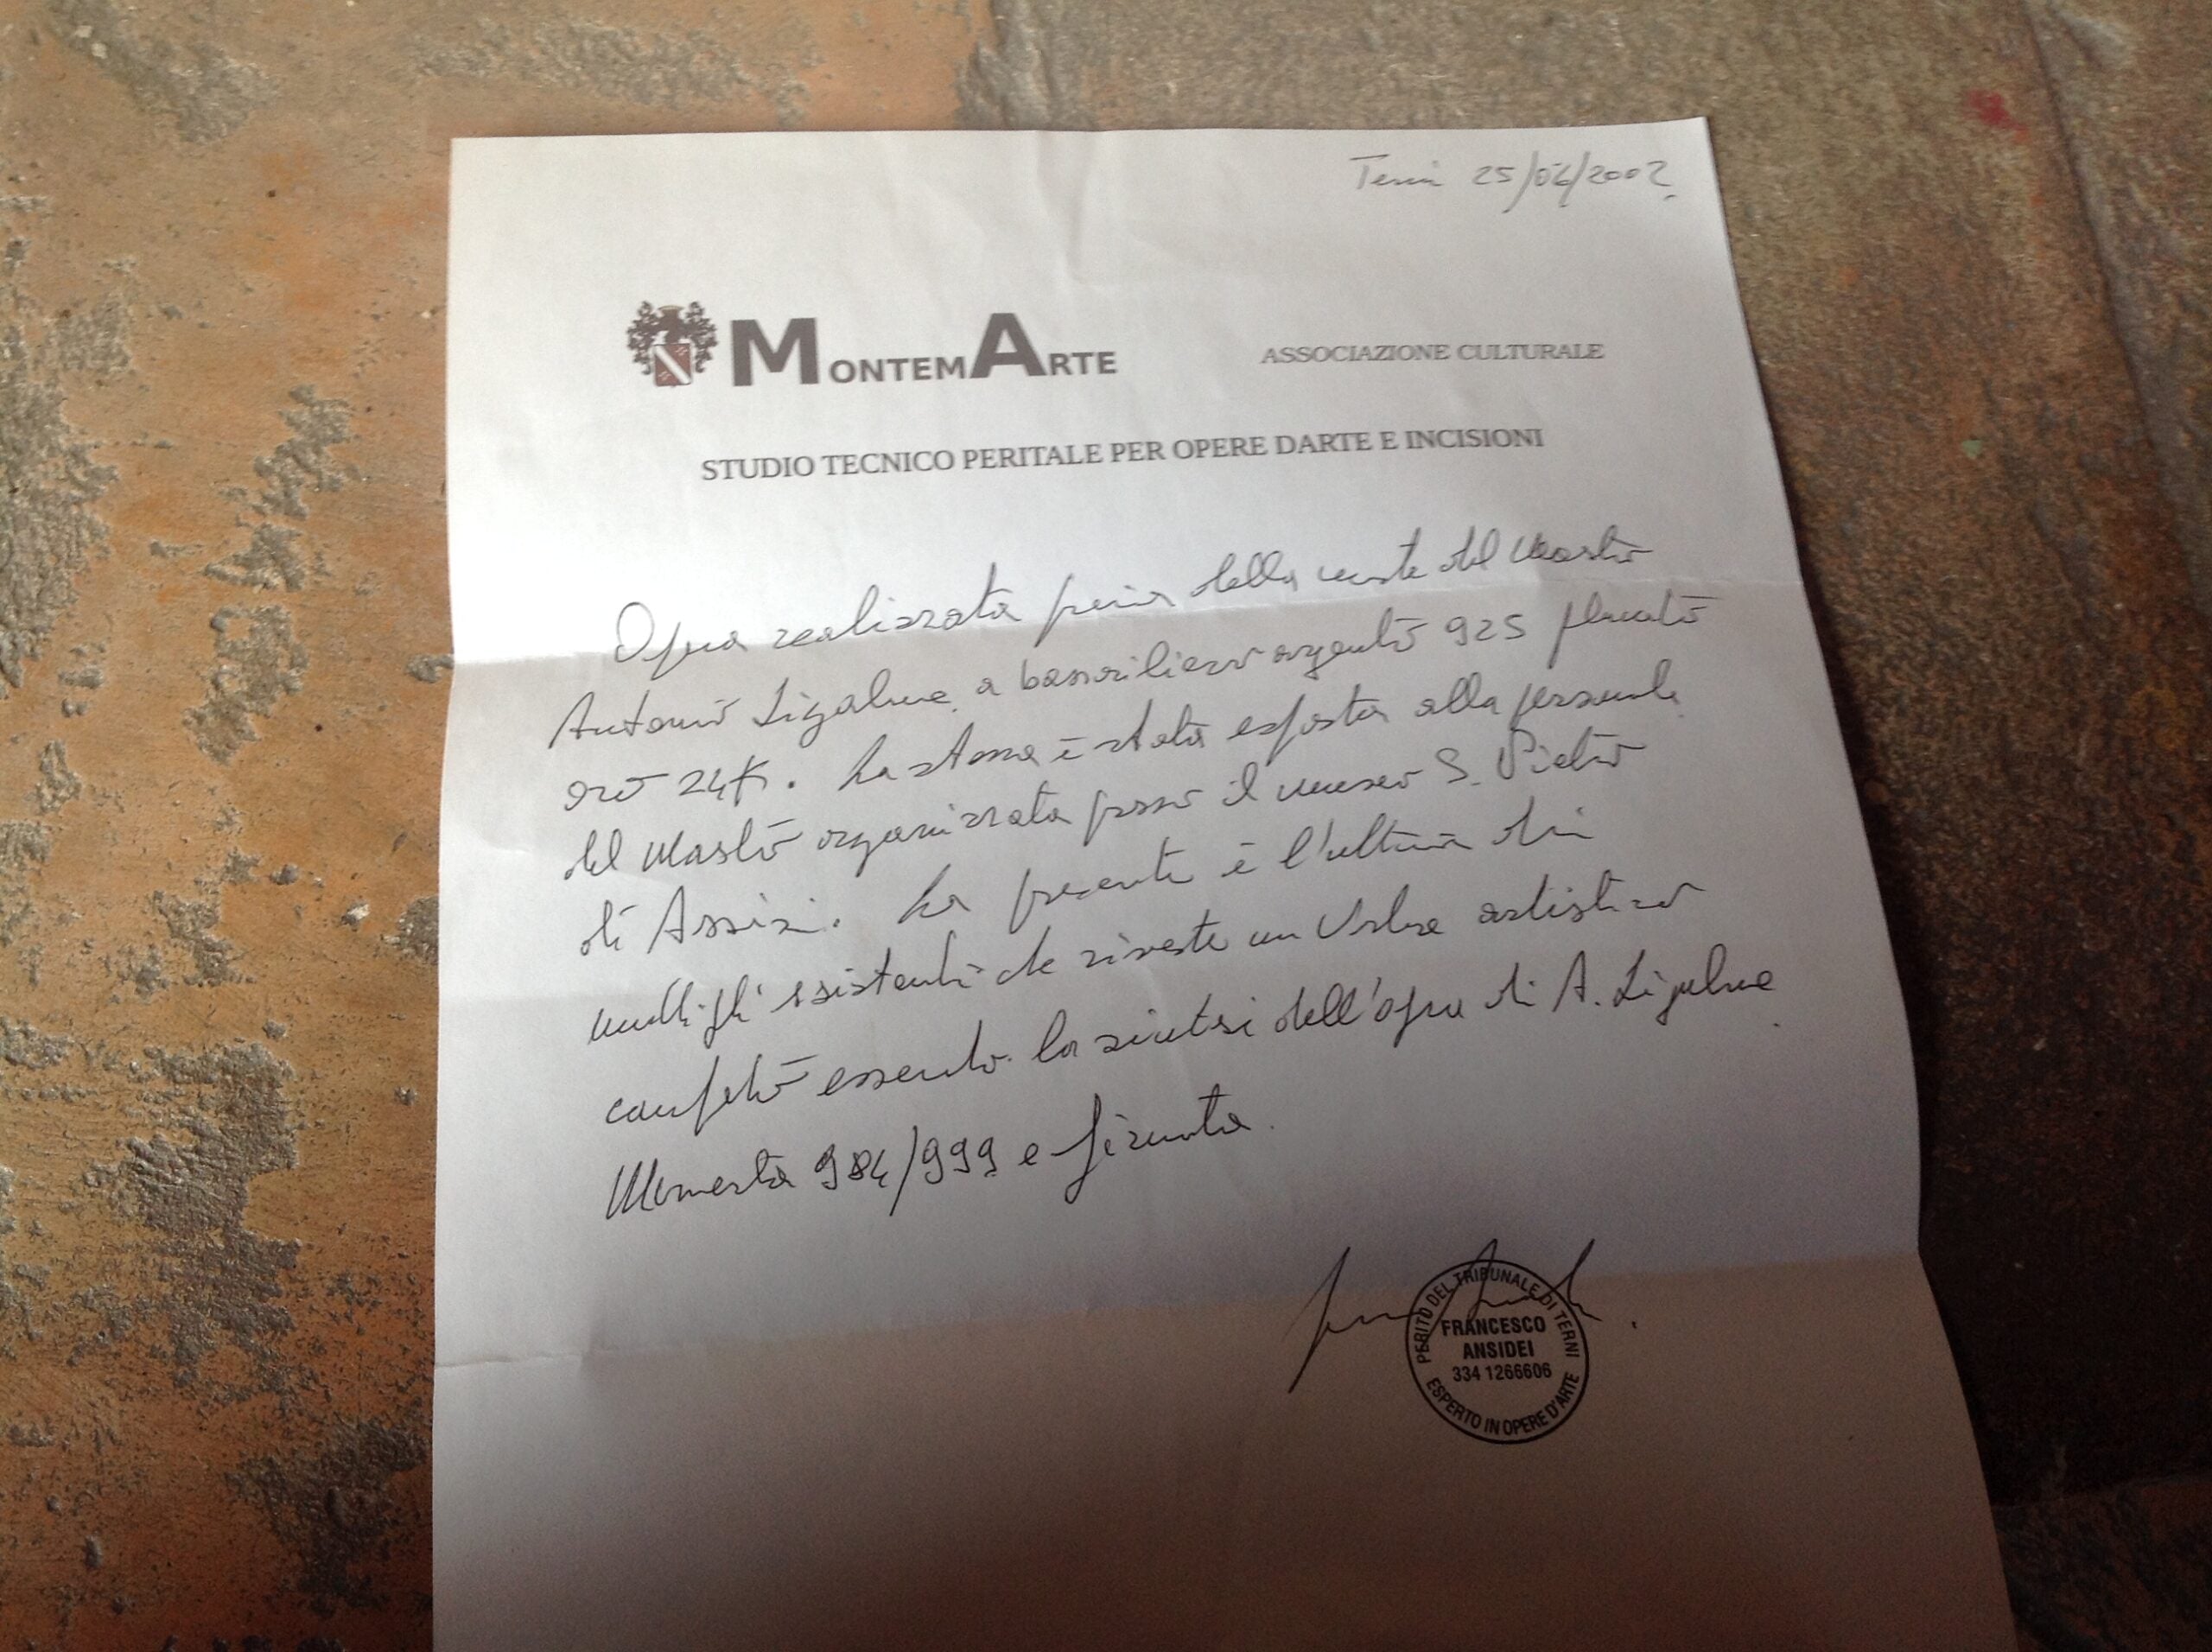 Terni 25/06/2002
MONTEMARTE
ASSOCIAZIONE CULTURALE
STUDIO TECNICO PERITALE PER OPERE DARTE E INCISIONI
Opera realizzata prima della morte del Maestro
Antonio Ligabue a bassorilievo argento 925 placcato
oro 24K. La stessa è stata esposta alla personale
del Maestro organizzata presso il museo S. Pietro
di Assisi. La presente è l'ultima dei
multipli esistenti che riveste un valore artistico
completo essendo la sintesi dell'opera di A. Ligabue
Numerata 984/999 e firmata
PERITO DEL TRIBUNALE DI TERNI
FRANCESCO
ANSIDEI
334 1266606
ESPERTO IN OPERE D'ARTE